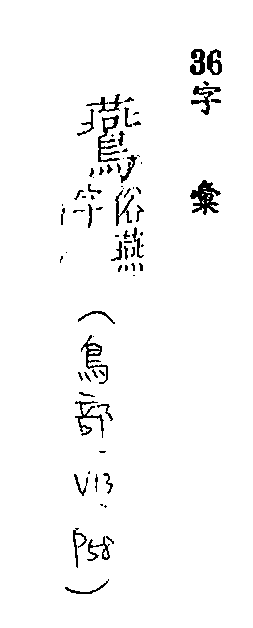 36字彙
鷰俗燕字
(鳥部.V13.P58)